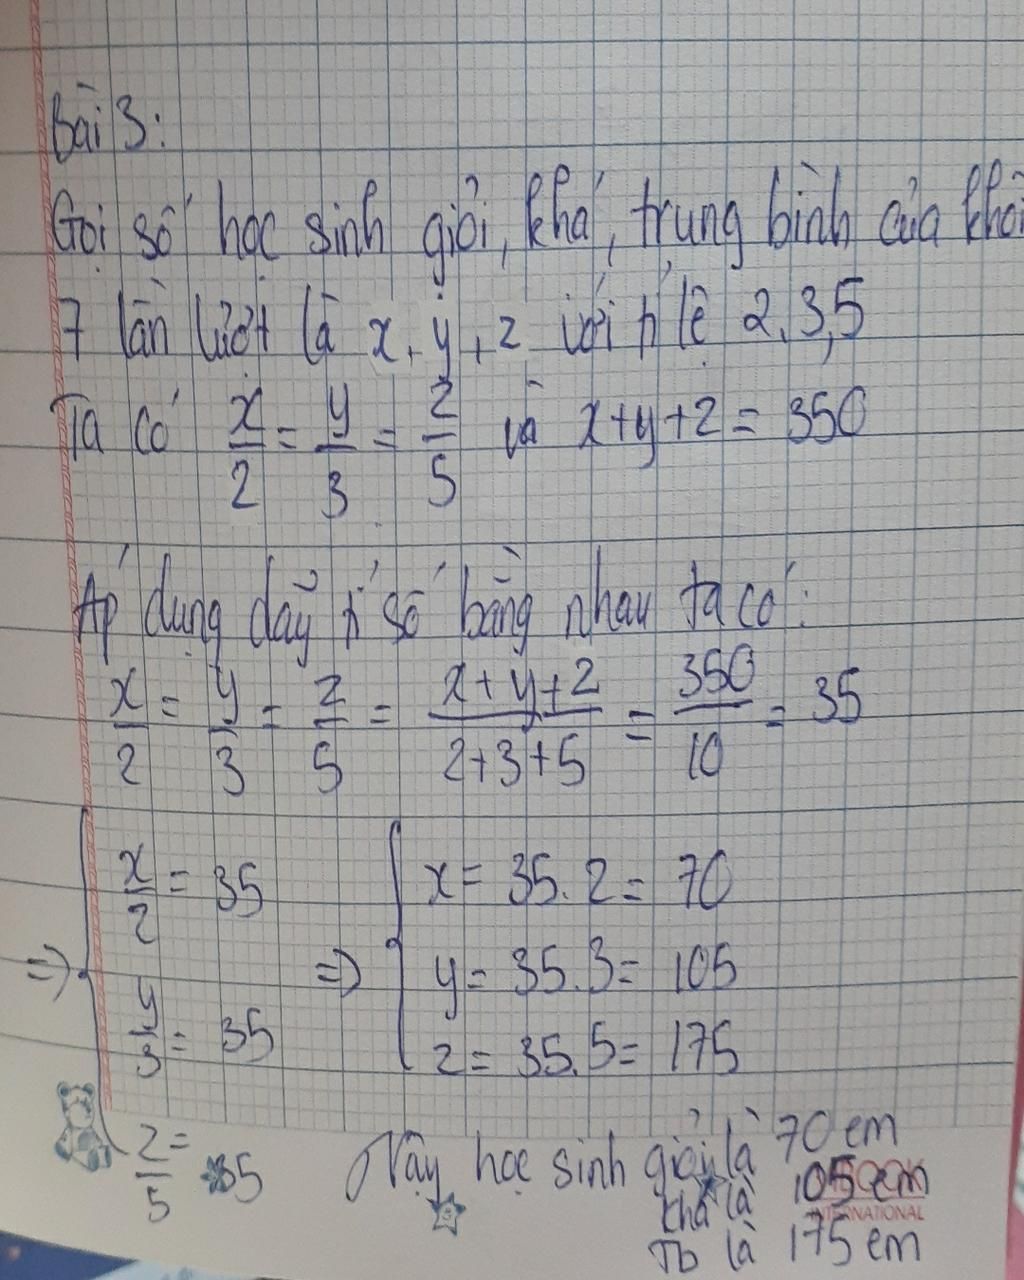 Bài 3:
Gọi số học sinh giỏi, khá, trung bình của khối
7 lần lượt là x, y, z với tỉ lệ 2,3,5
Ta có x/2 = y/3 = z/5 và x+y+z = 350
Áp dụng dãy tỉ số bằng nhau ta có:
x/2 = y/3 = z/5 = x+y+z/2+3+5 = 350/10 = 35
=> { x/2 = 35 => { x = 35.2 = 70
y/3 = 35 y = 35.3 = 105
z/5 = 35 z = 35.5 = 175
Vậy học sinh giỏi là 70 em
khá là 105 em
INTERNATIONAL
Tb là 175 em